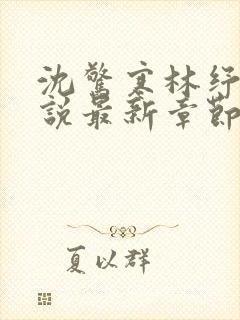 沈驚寒林紓
說最新章節
夏以群